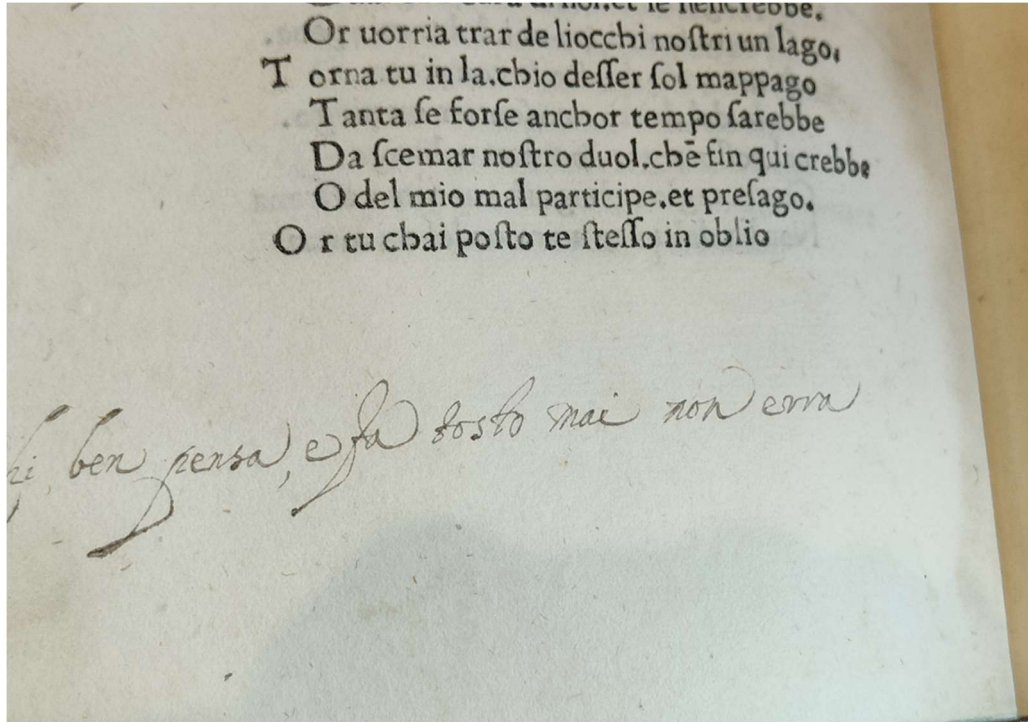 Or uorria trar de liocchi noſtri un lago,
T orna tu in la.chio deſſer ſol mappago
Tanta ſe forſe anchor tempo ſarebbe
Da ſcemar noſtro duol.chē fin qui crebbe
O del mio mal participe.et preſago.
O r tu chai poſto te ſteſſo in oblio
hi ben pensa, e fa tosto mai non erra